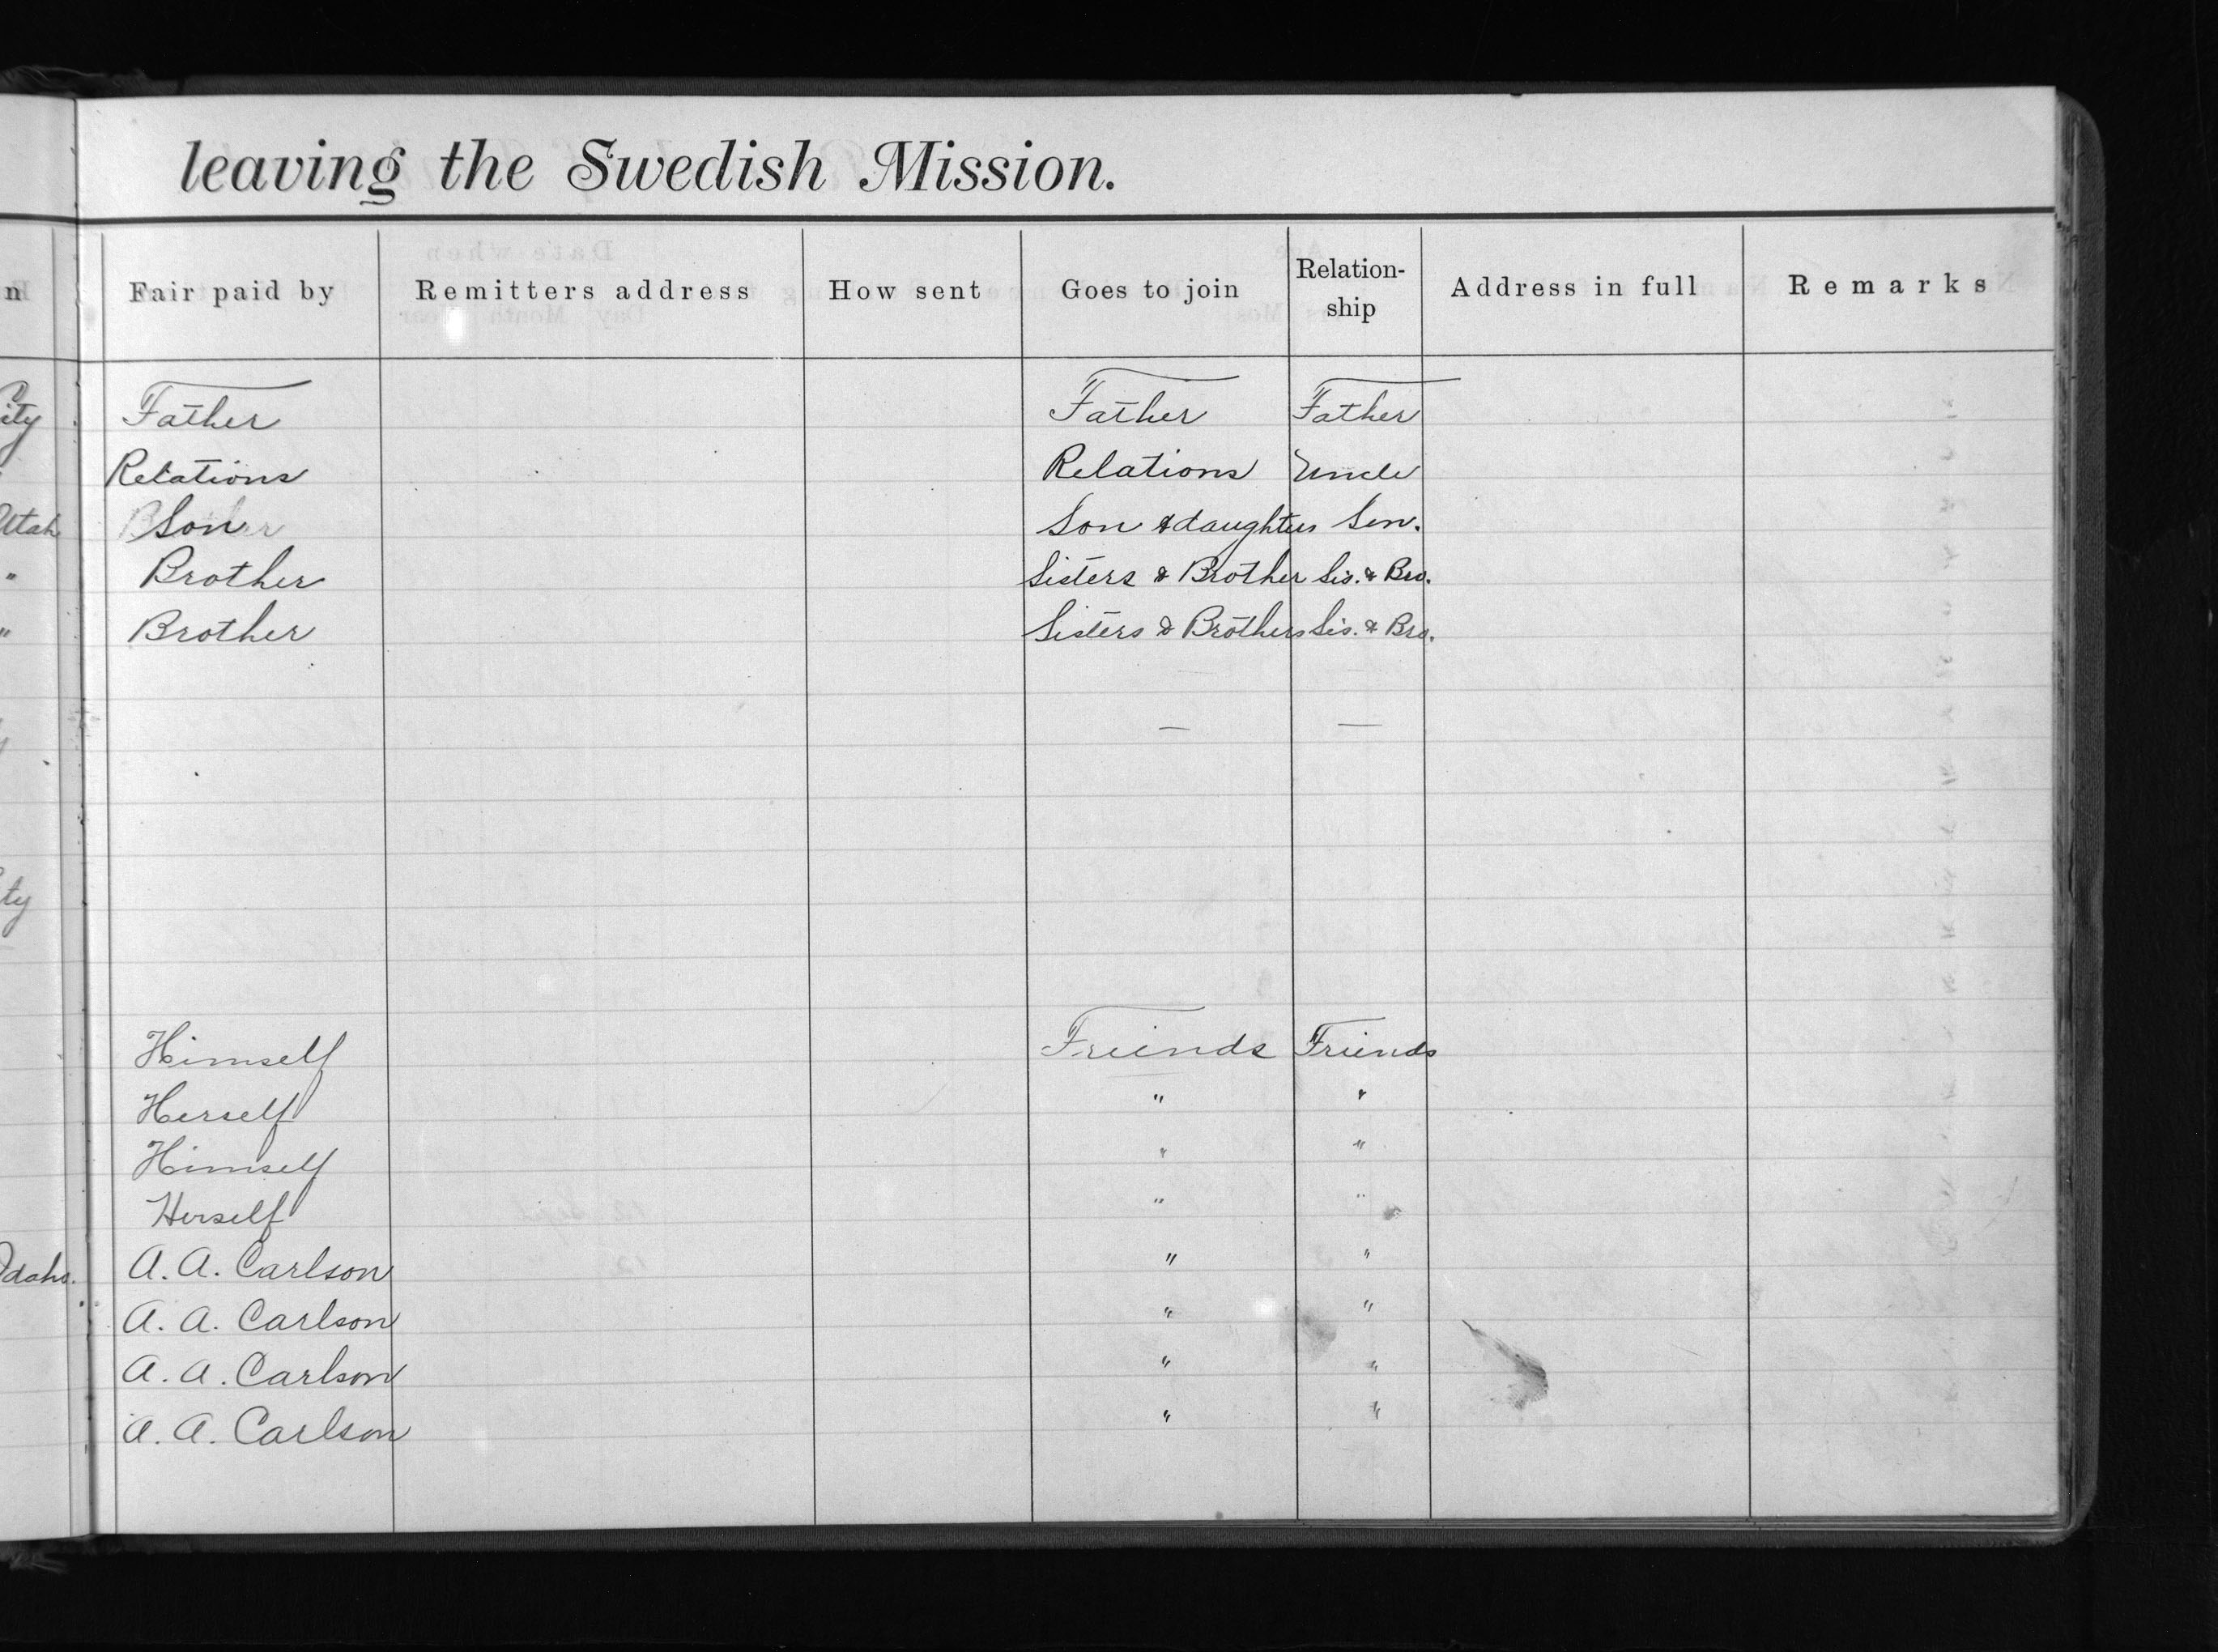 leaving the Swedish Mission.
Fair paid by Remitters address How sent Goes to join Relation-ship Address in full Remarks
City Father Father Father
Relations Relations Uncle
Utah Son Son & daughters Son.
" Brother Sisters & Brother Sis. & Bro.
" Brother Sisters & Brothers Sis. & Bro.
— —
ty
Himself Friends Friends
Herself " "
Himself " "
Herself " "
Idaho. A. A. Carlson " "
A. A. Carlson " "
A. A. Carlson " "
A. A. Carlson " "